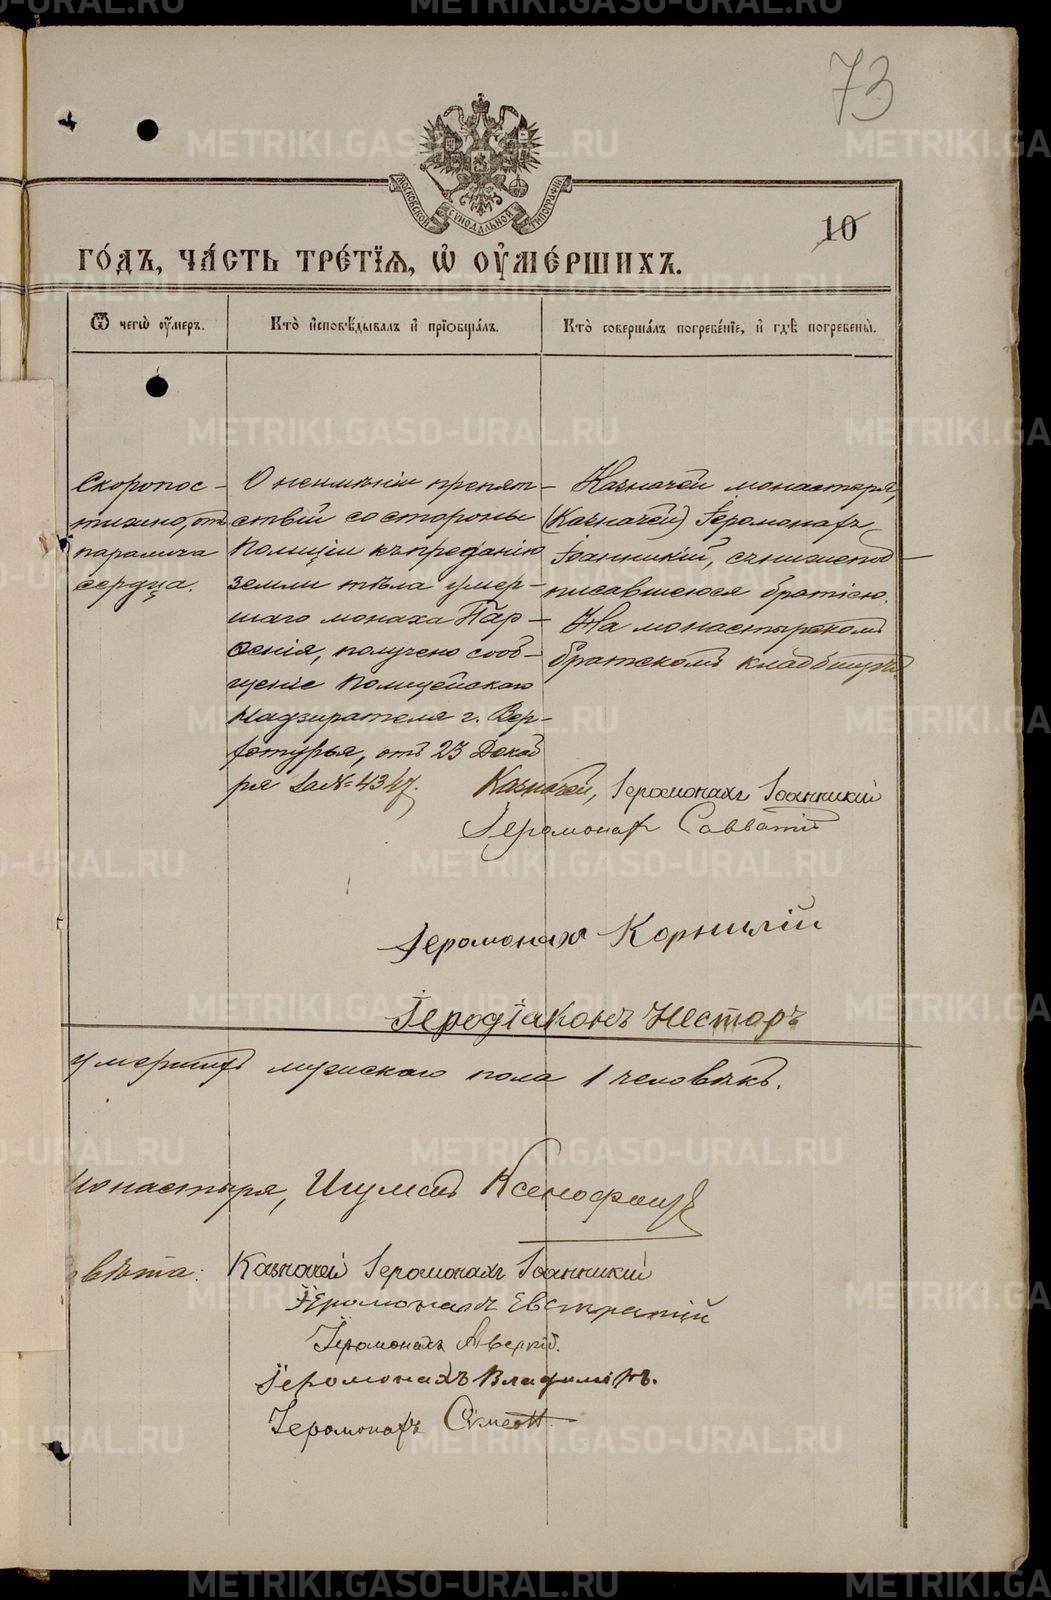 73
МОСКОВСКОЙ СѴНОДАЛЬНОЙ ТИПОГРАФІИ
10
ГО́ДЪ, ЧА́СТЬ ТРЕ́ТЇѦ, Ѡ҆ ОУ҆МЕ́РШИХЪ.
Ѿ чегѡ̀ оу҆́меръ.
Кто̀ и҆сповѣ́дывалъ и҆ прїѻбща́лъ.
Кто̀ соверша́лъ погребе́нїе, и҆ гдѣ̀ погребены̀.
Скоропос-
тижно, отъ
паралича
сердца.
О неимѣніи препят-
ствій со стороны
Полиціи къ преданію
земли тѣла умер-
шаго монаха Пар-
ѳенія, получено сооб-
щеніе Полицейскаго
Надзирателя г. Вер-
хотурья, отъ 23 Декаб
ря за №
Казначей монастыря,
(Казначей) Іеромонахъ
Іоанникій, съ нижепод-
писавшеюся братіею.
На монастырскомъ
братскомъ кладбищѣ.
Казначей, Іеромонахъ Іоанникій
Іеромонахъ Савватій
Іеромонахъ Корнилій
Іеродіаконъ Несторъ
умершихъ мужскаго пола 1 человѣкъ.
монастыря, Игуменъ Ксенофонтъ
вѣта: Казначей Іеромонахъ Іоанникій
Іеромонахъ Евстратій
Іеромонахъ Аверкій.
Іеромонахъ Владиміръ.
Іеромонахъ Сѵмеонъ
METRIKI.GASO-URAL.RU